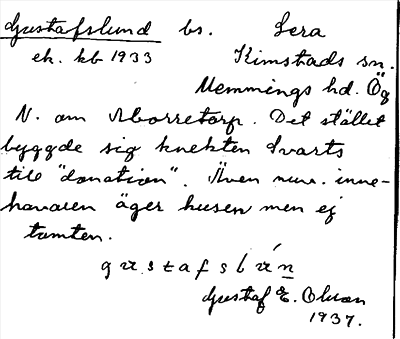 Gustafslund bs. Lera
ek. kb 1933 Kimstads sn.
Memmings hd. Ög
N. om Aborretorp. Det stället
byggde sig knekten Svarts
till "donation". Även nuv. inne-
havaren äger husen men ej
tomten.
Gustaf E. Olsson
1937.